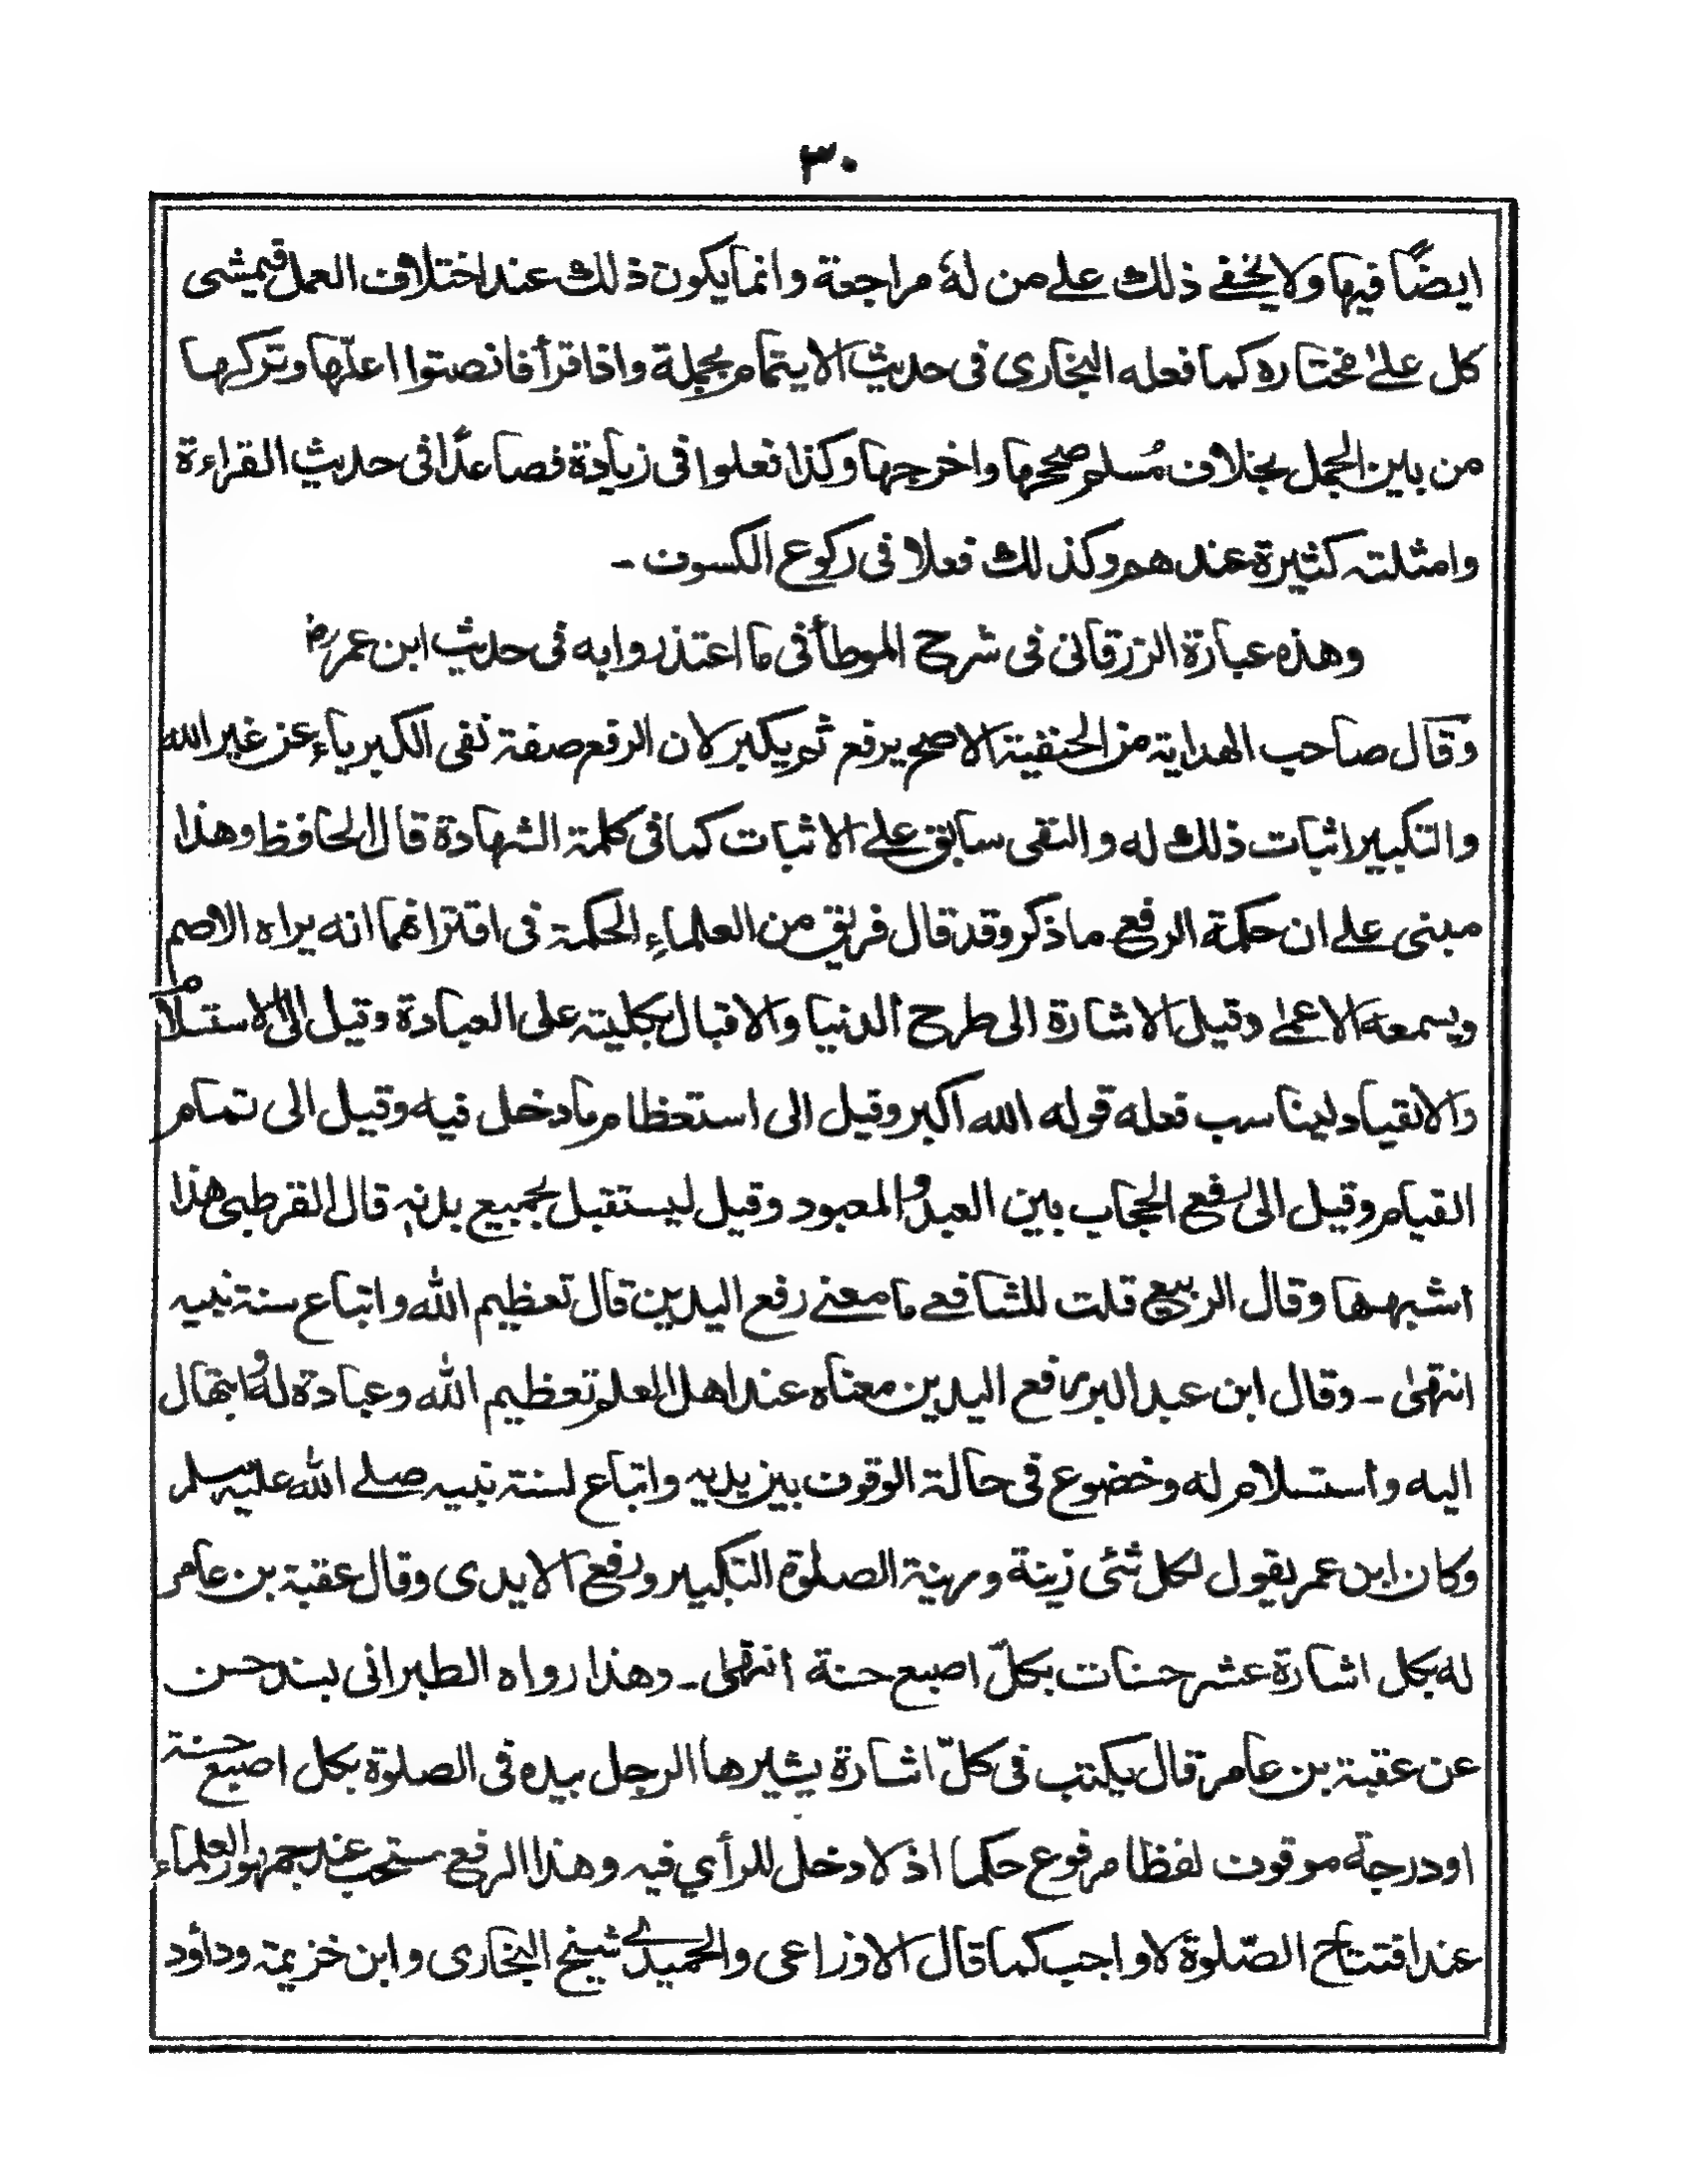 ٣٠
ايضًا فيها ولا يخفى ذلك على من له مراجعة وانما يكون ذلك عند اختلاف العمل فيمشى
كل على مختاره كما فعله البخارى فى حديث الايتمام بجملة واذا قرأ فانصتوا اعلّها وتركها
من بين الجمل بخلاف مُسلم صححها واخرجها وكذا فعلوا فى زيادة فصاعدًا فى حديث القراءة
وامثلته كثيرة عندهم وكذلك فعلا فى ركوع الكسوف ـ
وهذه عبارة الزرقانى فى شرح الموطأ فى ما اعتذروا به فى حديث ابن عمر رض
وقال صاحب الهداية من الحنفية الاصح يرفع ثم يكبر لان الرفع صفة نفى الكبرياء عن غير الله
والتكبير اثبات ذلك له والنفى سابق على الاثبات كما فى كلمة الشهادة قال الحافظ وهذا
مبنى على ان حكمة الرفع ما ذكر وقد قال فريق من العلماء الحكمة فى اقترانهما انه يراه الاصم
ويسمعه الاعمى وقيل الاشارة الى طرح الدنيا والاقبال بكليته على العبادة وقيل الى الاستسلام
والانقياد ليناسب فعله قوله الله اكبر وقيل الى استعظام ما دخل فيه وقيل الى تمام
القيام وقيل الى رفع الحجاب بين العبد والمعبود وقيل ليستقبل بجميع بدنه قال القرطبى هذا
اشبهها وقال الربيع قلت للشافعى ما معنى رفع اليدين قال تعظيم الله واتباع سنة نبيه
انتهى ـ وقال ابن عبد البر رفع اليدين معناه عند اهل العلم تعظيم الله وعبادة له وابتهال
اليه واستسلام له وخضوع فى حالة الوقوف بين يديه واتباع لسنة نبيه صلى الله عليه وسلم
وكان ابن عمر يقول لكل شئى زينة وزينة الصلوة التكبير ورفع الايدى وقال عقبة بن عامر
له بكل اشارة عشر حسنات بكلّ اصبع حسنة انتهى ـ وهذا رواه الطبرانى بسند حسن
عن عقبة بن عامر قال يكتب فى كلّ اشارة يشيرها الرجل بيده فى الصلوة بكل اصبع حسنة
او درجة موقوف لفظا مرفوع حكما اذ لا دخل للرأي فيه وهذا الرفع مستحب عند جمهور العلماء
عند افتتاح الصّلوة لا واجب كما قال الاوزاعى والحميدى شيخ البخارى وابن خزيمة وداؤد